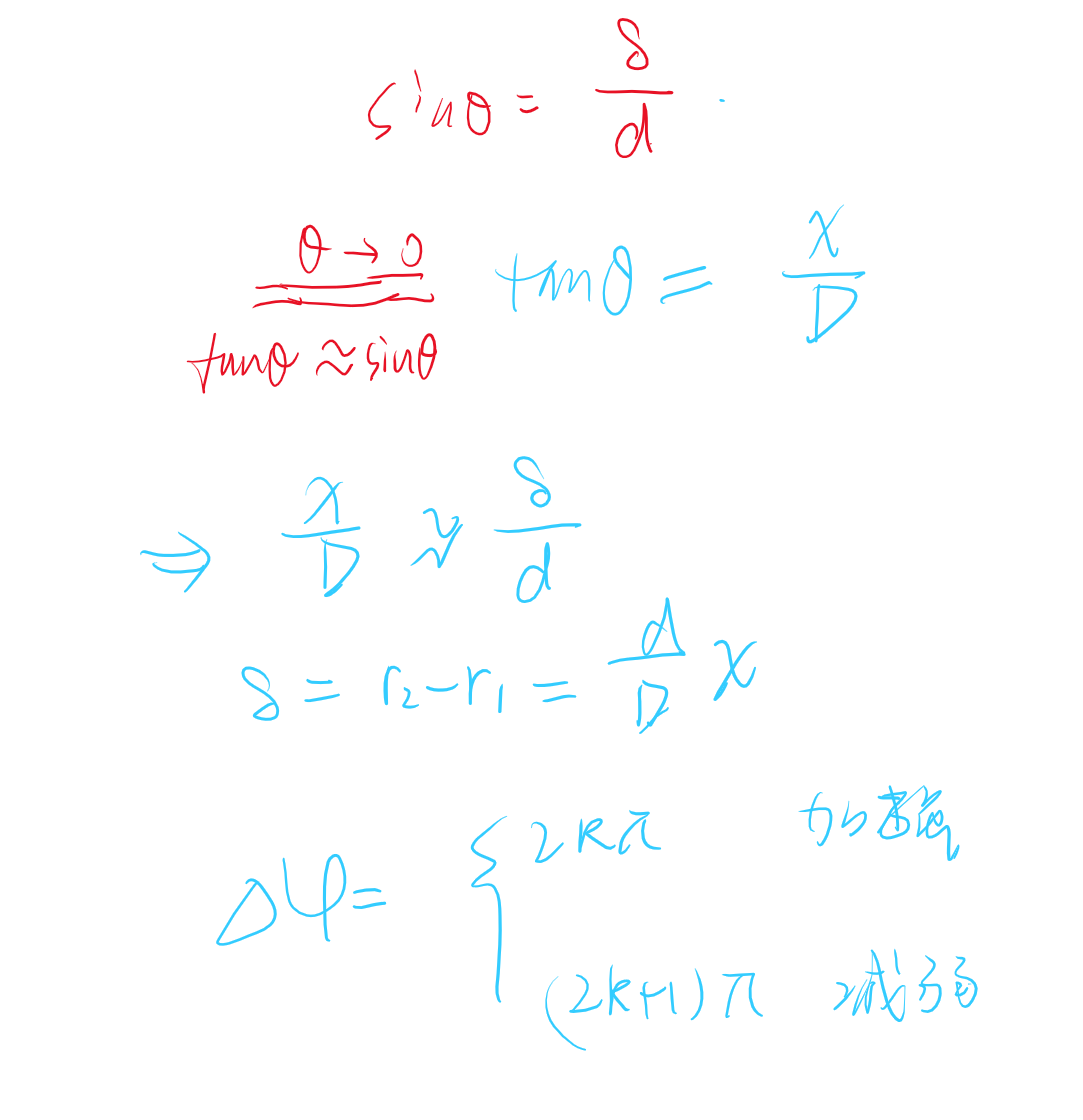 sinθ = δ/d
θ → 0
tanθ ≈ sinθ
tanθ = x/D
⇒ x/D ≈ δ/d
δ = r₂ − r₁ = d/D x
Δφ = { 2kπ 加强
(2k+1)π 减弱